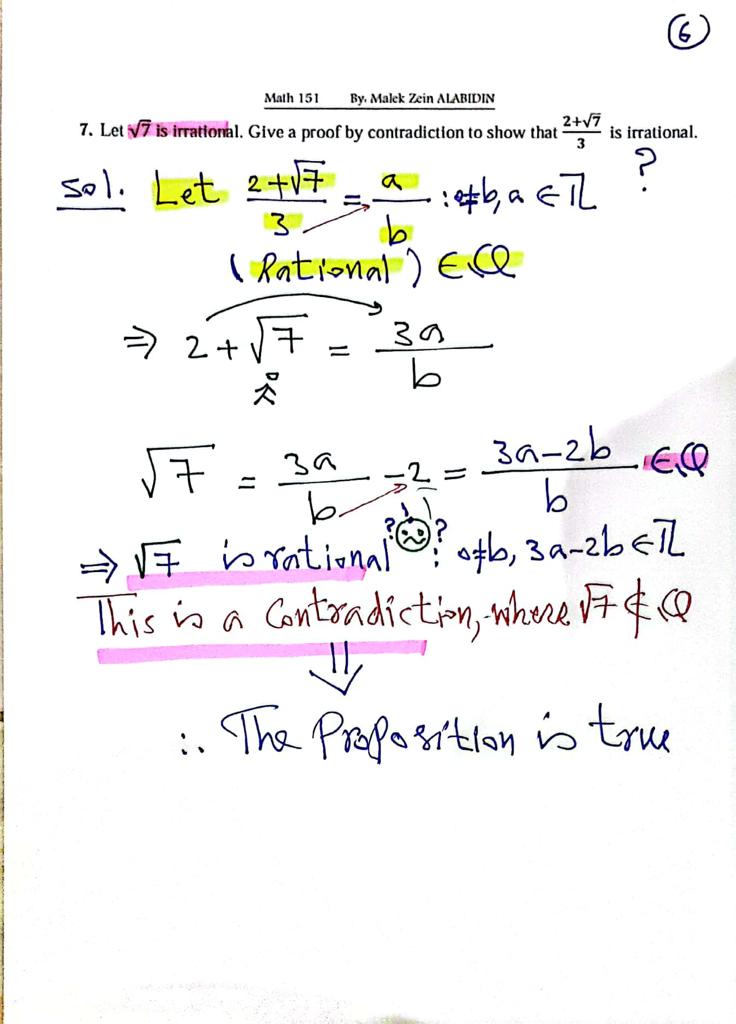 6
Math 151 By. Malek Zein ALABIDIN
7. Let √7 is irrational. Give a proof by contradiction to show that (2+√7)/3 is irrational.
Sol. Let (2+√7)/3 = a/b : 0≠b, a ∈ ℤ ?
(Rational) ∈ ℚ
⇒ 2+√7 = 3a/b
√7 = 3a/b −2 = (3a−2b)/b ∈ ℚ
⇒ √7 is rational ? ? : 0≠b, 3a−2b ∈ ℤ
This is a Contradiction, where √7 ∉ ℚ
⇓
∴ The Proposition is true